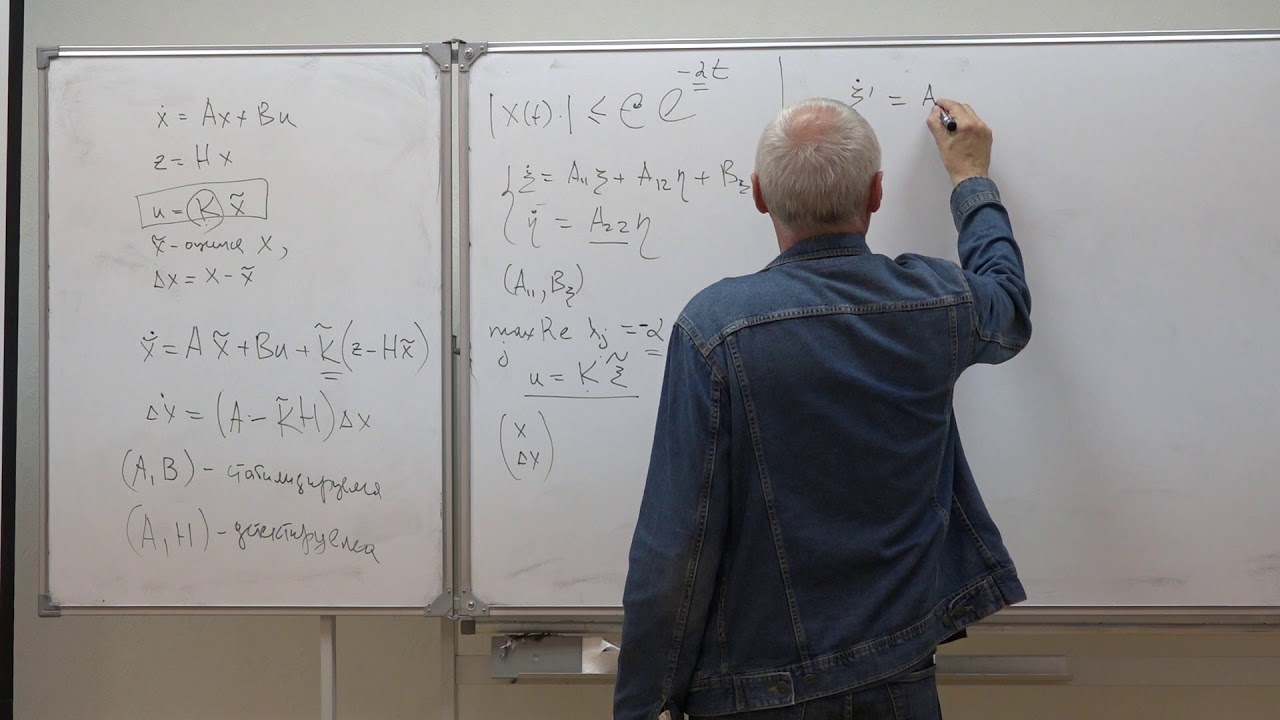 ẋ = Ax + Bu
z = Hx
u = K x̃
x̃ - оценка x,
Δx = x - x̃
x̃̇ = A x̃ + Bu + K̃(z - Hx̃)
Δẋ = (A - K̃H)Δx
(A, B) - стабилизируема
(A, H) - детектируема
|X(t)| ≤ C e^{-αt}
ξ̇ = A₁₁ξ + A₁₂η + B_ξ
η̇ = A₂₂η
(A₁₁, B_ξ)
max Re λ_j = -α
j
u = K ξ̃
(x
Δx)
ξ̇' = A